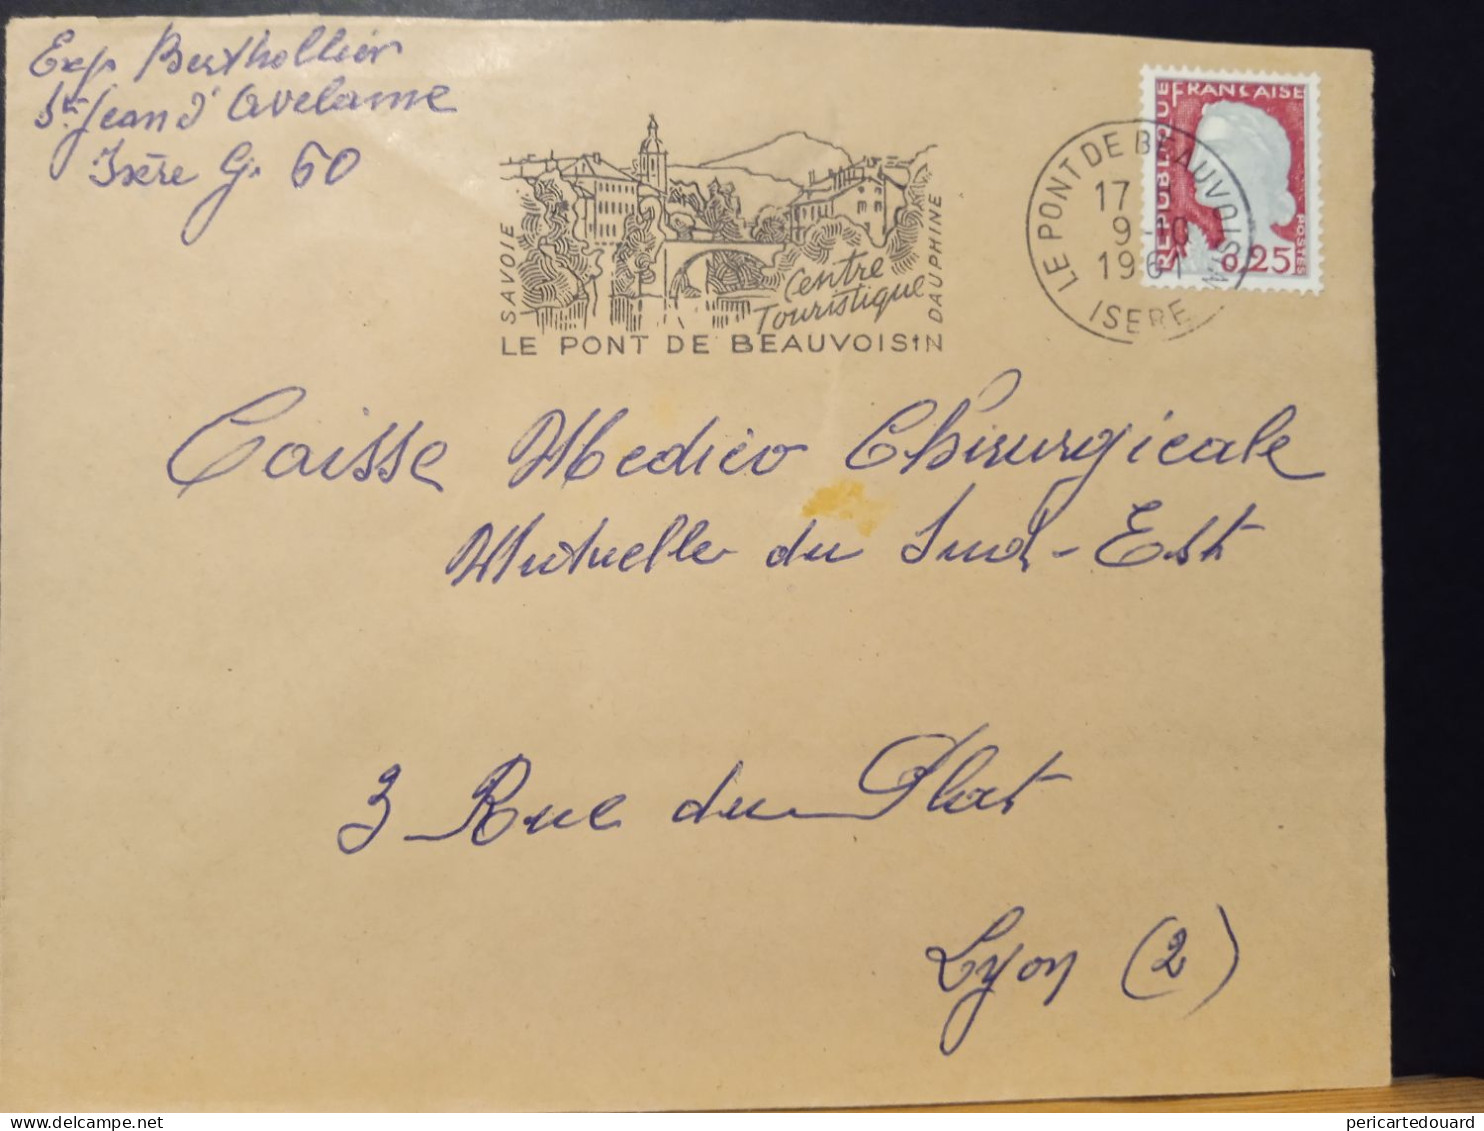 Exp. Berthollier
St Jean d'Avelanne
Isère G. 60
SAVOIE
DAUPHINE
Centre
Touristique
LE PONT DE BEAUVOISIN
LE PONT DE BEAUVOISIN
17
9-10
1961
ISERE
REPUBLIQUE FRANÇAISE
POSTES
0,25
Caisse Medico Chirurgicale
Mutuelle du Sud-Est
3 Rue du Plat
Lyon (2)
pericartedouard